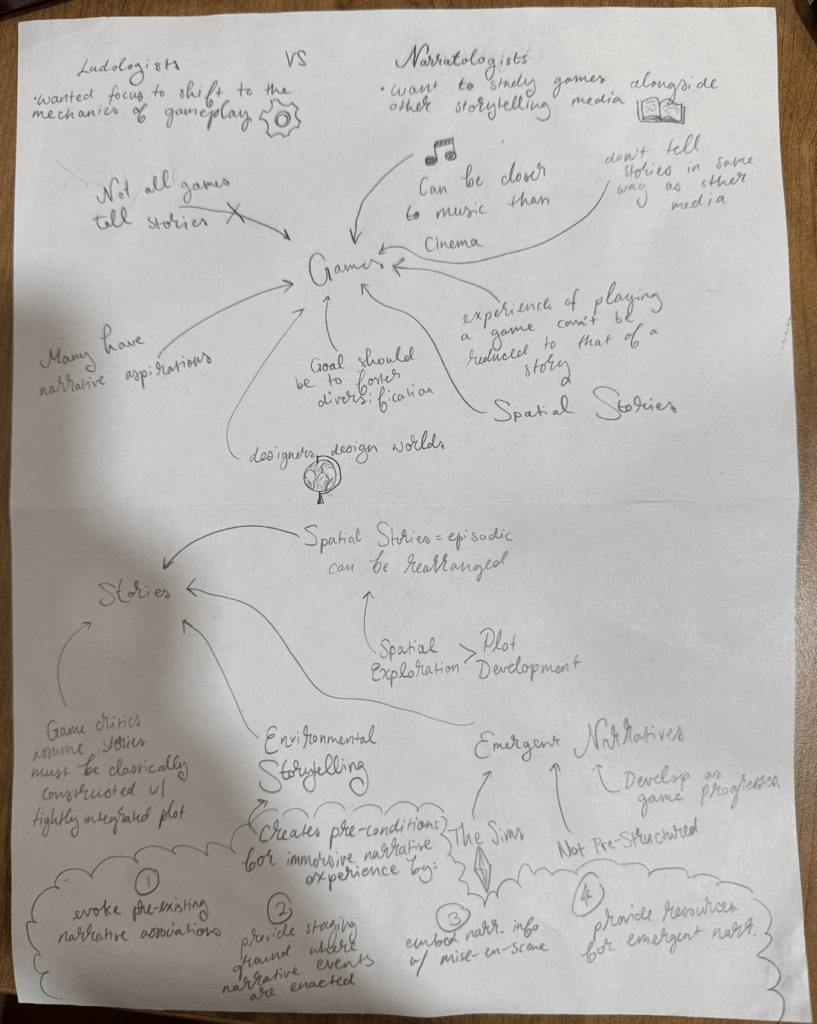 Ludologists VS Narratologists
• wanted focus to shift to the
mechanics of gameplay
• want to study games alongside
other storytelling media
Not all games
tell stories
Can be closer
to music than
Cinema
don't tell
stories in same
way as other
media
Games
Many have
narrative aspirations
Goal should
be to foster
diversification
experience of playing
a game can't be
reduced to that of a
story
Spatial Stories
designers design worlds
Spatial Stories = episodic
can be rearranged
Stories
Spatial
Exploration > Plot
Development
Game critics
assume stories
must be classically
constructed w/
tightly integrated plot
Environmental
Storytelling
Emergent Narratives
Develop as
game progresses
The Sims
Not Pre-Structured
Creates pre-conditions
for immersive narrative
experience by:
1
evoke pre-existing
narrative associations
2
provide staging
ground where
narrative events
are enacted
3
embed narr. info
w/ mise-en-scene
4
provide resources
for emergent narr.